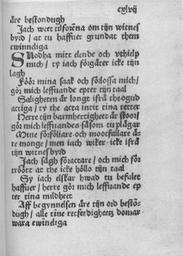 cxlvij
äre bestondugh
Jach weet tilförena om tijn witnes
byrd / at tu haffuer grundat them
ewinnliga
SKodha mitt elende och vthielp
mich / ty iach förgäter icke tijn
lagh
Föör mina saak och förlossa mich /
gör mich leffuiande epter tijn taal
Saligheten är longe ifrå the ogud
actiga / ty the acta intit tina retter
Herre tijn barmhertigheet är stoor /
gör mich leffuiande epter tijn
Mine förfölliare och mootståndare äre
monge / men iach wiker icke ifrå
tijn witnesbyrd
Jach sågh föractare / och mich för
tröött at the icke höllo tijn taal
Sy iach elskar hwad tu befalet
haffuer / herre gör mich leffuiande ep
ter tina mildheet
Aff begynnelsen äre tijn ord bestön
dugh / alle tine retferdigheets domar
wara ewinnliga